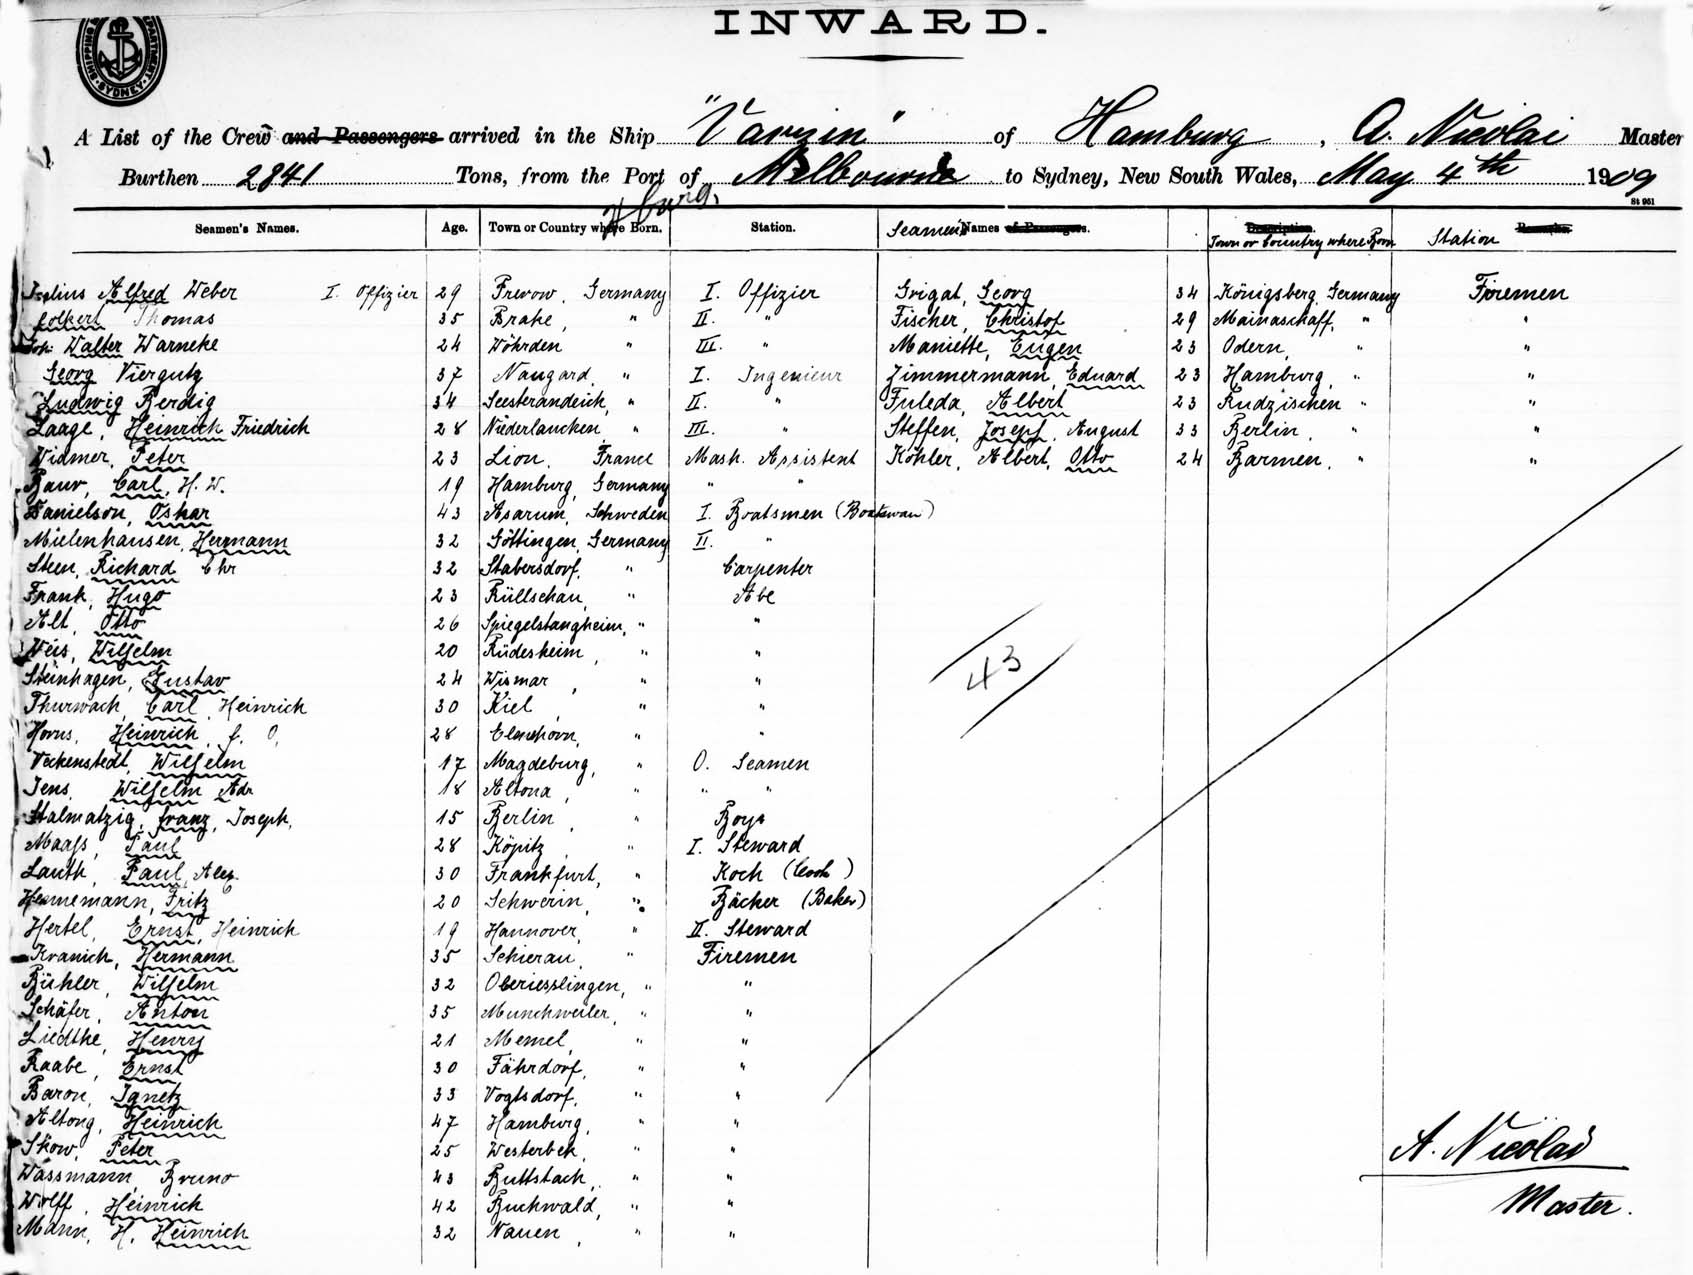 SHIPPING DEPARTMENT SYDNEY
INWARD.
A List of the Crew and Passengers arrived in the Ship "Varzin" of Hamburg, A. Nicolai Master
Burthen 2841 Tons, from the Port of Melbourne to Sydney, New South Wales, May 4th 1909
St 961
Seamen's Names. Age. Town or Country where Born. Station. Seamen's Names of Passengers. Description. Town or Country where Born Station Remarks.
Julius Alfred Weber I. Offizier 29 Prerow, Germany I. Offizier Grigat, Georg 34 Königsberg, Germany Firemen
Folkert Thomas 35 Brake, " II. " Fischer, Christof 29 Mainaschaff, " "
Joh. Walter Warneke 24 Wöhrden " III. " Maniette, Eugen 23 Odern, " "
Georg Viergutz 37 Naugard, " I. Ingenieur Zimmermann, Eduard 23 Hamburg, " "
Ludwig Berdig 34 Seesterandeich, " II. " Fuleda, Albert 23 Rudzischen " "
Laage, Heinrich Friedrich 28 Niederlaucken " III. " Steffen, Josepf, August 33 Berlin, " "
Widmer, Peter 23 Lion, France Mash. Assistent Köhler, Albert, Otto 24 Barmen, " "
Baur, Carl, H. W. 19 Hamburg, Germany " "
Danielson, Oskar 43 Asarum, Schweden I. Boatsmen (Boatswan)
Mielenhausen, Hermann 32 Göttingen, Germany II. "
Steen, Richard Chr 32 Stabersdorf, " Carpenter
Frank, Hugo 23 Rüllschau, " Abe
Alt, Otto 26 Spiegelstangheim, " "
Weis, Wilhelm 20 Rüdesheim, " "
Steinhagen, Gustav 24 Wismar, " "
Thurwach, Carl, Heinrich 30 Kiel, " "
Horns, Heinrich, f. O, 28 Elmshorn, " "
Veckenstedt, Wilhelm 17 Magdeburg, " O. Seamen
Jens, Wilhelm Adr 18 Altona, " " "
Stalmatzig, Franz, Joseph, 15 Berlin, " Boys
Maass, Paul 28 Köpitz, " I. Steward
Lauth, Paul, Alex. 30 Frankfurt, " Koch (Cook)
Hennemann, Fritz 20 Schwerin, " Bächer (Baker)
Hertel, Ernst, Heinrich 19 Hannover, " II. Steward
Kranich, Hermann 35 Schierau, " Firemen
Bühler, Wilhelm 32 Oberiesslingen, " "
Schäfer, Anton 35 Munchweiler, " "
Liedtke, Henry 21 Memel, " "
Raabe, Ernst 30 Fährdorf, " "
Baron, Ignetz 33 Vogtsdorf, " "
Altong, Heinrich 47 Hamburg, " "
Skow, Peter 25 Westerbek, " "
Wassmann, Bruno 43 Buttstach, " "
Wolff, Heinrich 42 Buchwald, " "
Mann, H. Heinrich 32 Nauen, " "
43
A. Nicolai
Master.